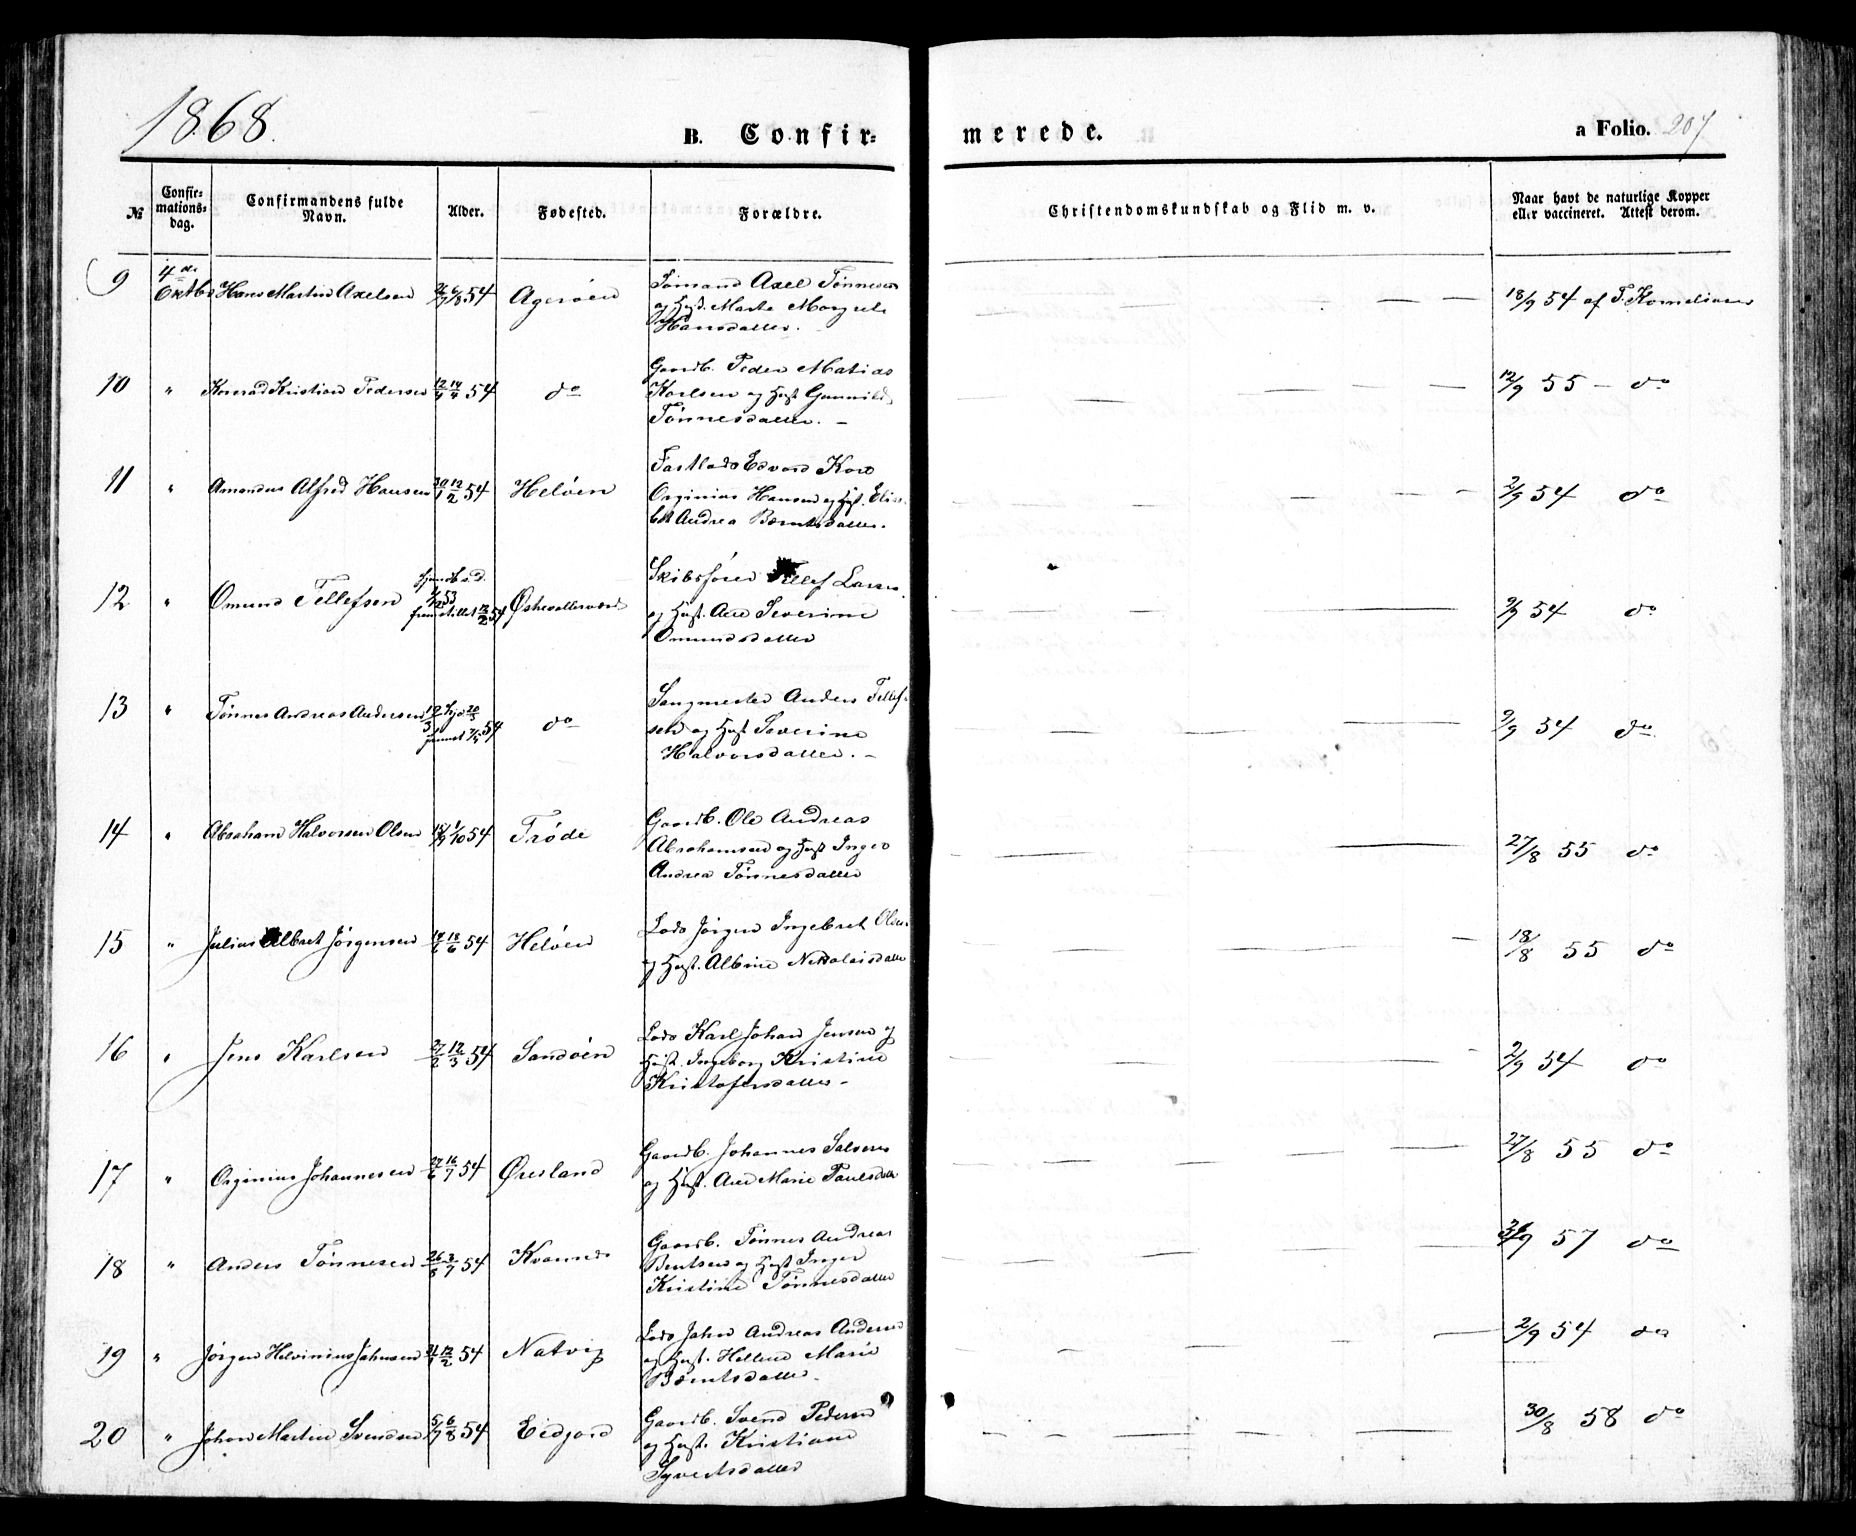 1868.
B. Confir-
merede.
a Folio. 207
№
Confir-
mations-
dag.
Confirmandens fulde
Navn.
Alder.
Fødested.
Forældre.
Christendomskundskab og Flid m. v.
Naar havt de naturlige Kopper
eller vaccineret. Attest derom.
9 4de Oktbr Hans Martin Axelsen 54 Agerøen
Sømand Axel Tønnesen
og Hust. Marte Margrete
Hansdatter.
18/9 54 af T. Kornelius
10 " Konrad Kristian Pedersen 54 do
Gaardb. Peder Matias
Karlsen og Hust Gunnild
Tønnesdatter. –
12/9 55 – do
11 " Amandus Alfred Hansen 30/1 12/2 54 Heløen
Edvard
Orginius Hansen og Hust. Elis-
bet Andrea Berntsdatter.
2/9 54 do
12 " Omund Tellefsen 12/2 54
Skibsfører Tellef Larsen
og Hust. Ane Severine
Omundsdatter
2/9 54 do
13 " Tønnes Andreas Andersen 12/3 54 do
Sangmester Anders Tellef-
sen og Hust Severine
Halvorsdatter. –
2/9 54 do
14 " Abraham Halvorsen Olsen 1/10 54 Trøde
Gaardb. Ole Andreas
Abrahamsen og Hust Inger
Andrea Tønnesdatter
27/8 55 do
15 " Julius Albret Jørgensen 18/6 54 Heløen
Lods Jørgen Ingebret Olsen
og Hust. Albine Nikolaisdatter
18/8 55 do
16 " Jens Karlsen 12/3 54 Sandøen
Lods Karl Johan Jensen og
Hust. Ingeborg Kristine
Kristofersdatter –
2/9 54 do
17 " Orginius Johannesen 27/6 16/7 54 Øresland
Gaardb. Johannes Salvesen
og Hust. Ane Marie Paulsdatter
27/8 55 do
18 " Anders Tønnesen 54
Gaardb. Tønnes Andreas
Bentsen og Hust Inger
Kristine Tønnesdatter
57 do
19 " Jørgen Helvinius Jahnsen 12/2 54 Natvig
Lods Jahn Andreas Andersen
og Hust. Hellene Marie
Berntsdatter
2/9 54 do
20 " Johan Martin Svendsen 5/7 6/8 54 Eidjord
Gaardb. Svend Pedersen
og Hust. Kristiane
Syvertsdatter
30/8 58 do